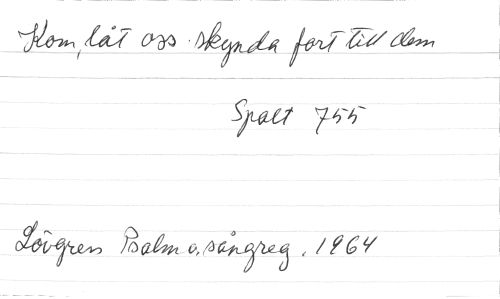 Kom, låt oss skynda fort till dem
Spalt 755
Lövgren Psalm o. sångreg. 1964